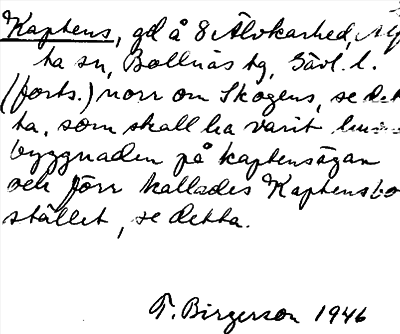 Kaptens, gd å 8 Älvkarhed, Alf
ta sn, Bollnäs tg, Gävl. l.
(forts.) norr om Skogens, se det
ta, som skall ha varit
byggnaden på kaptensägan
och förr kallades Kaptensbo
stället, se detta.
T. Birgerson 1946